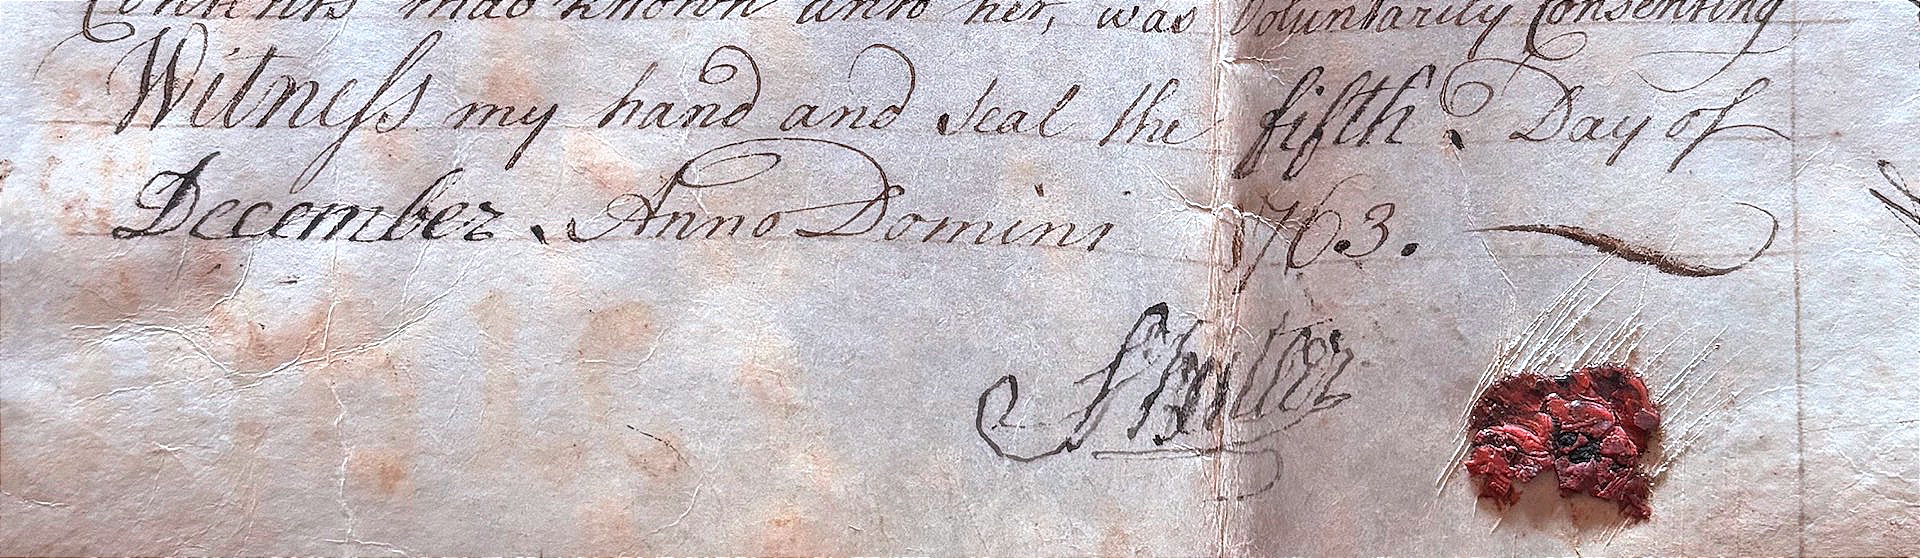 Contents mad known unto her, was Voluntarily Consenting
Witneſs my hand and Seal the fifth. Day of
December. Anno Domini 1763.